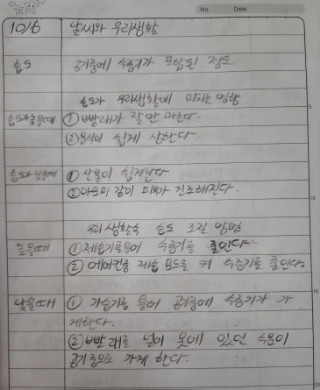 No. Date
10/6 날씨와 우리생활
습도 공기중에 수증기가 포함된 정도
습도가 우리생활에 미치는 영향
습도가 높을때 ① 빨래가 잘 안 마른다.
② 음식이 쉽게 상한다.
습도가 낮을때 ① 산불이 쉽게난다
② 피부가 건조해진다.
우리 생활속 습도 조절 방법
높을때 ① 제습기를 틀어 수증기를 줄인다.
② 에어컨을 제습 모드로 켜 수증기를 줄인다.
낮을때 ① 가습기를 틀어 공기중에 수증기가 가
게한다.
② 빨래를 널어 옷에 있던 수분이
공기중으로 가게 한다.